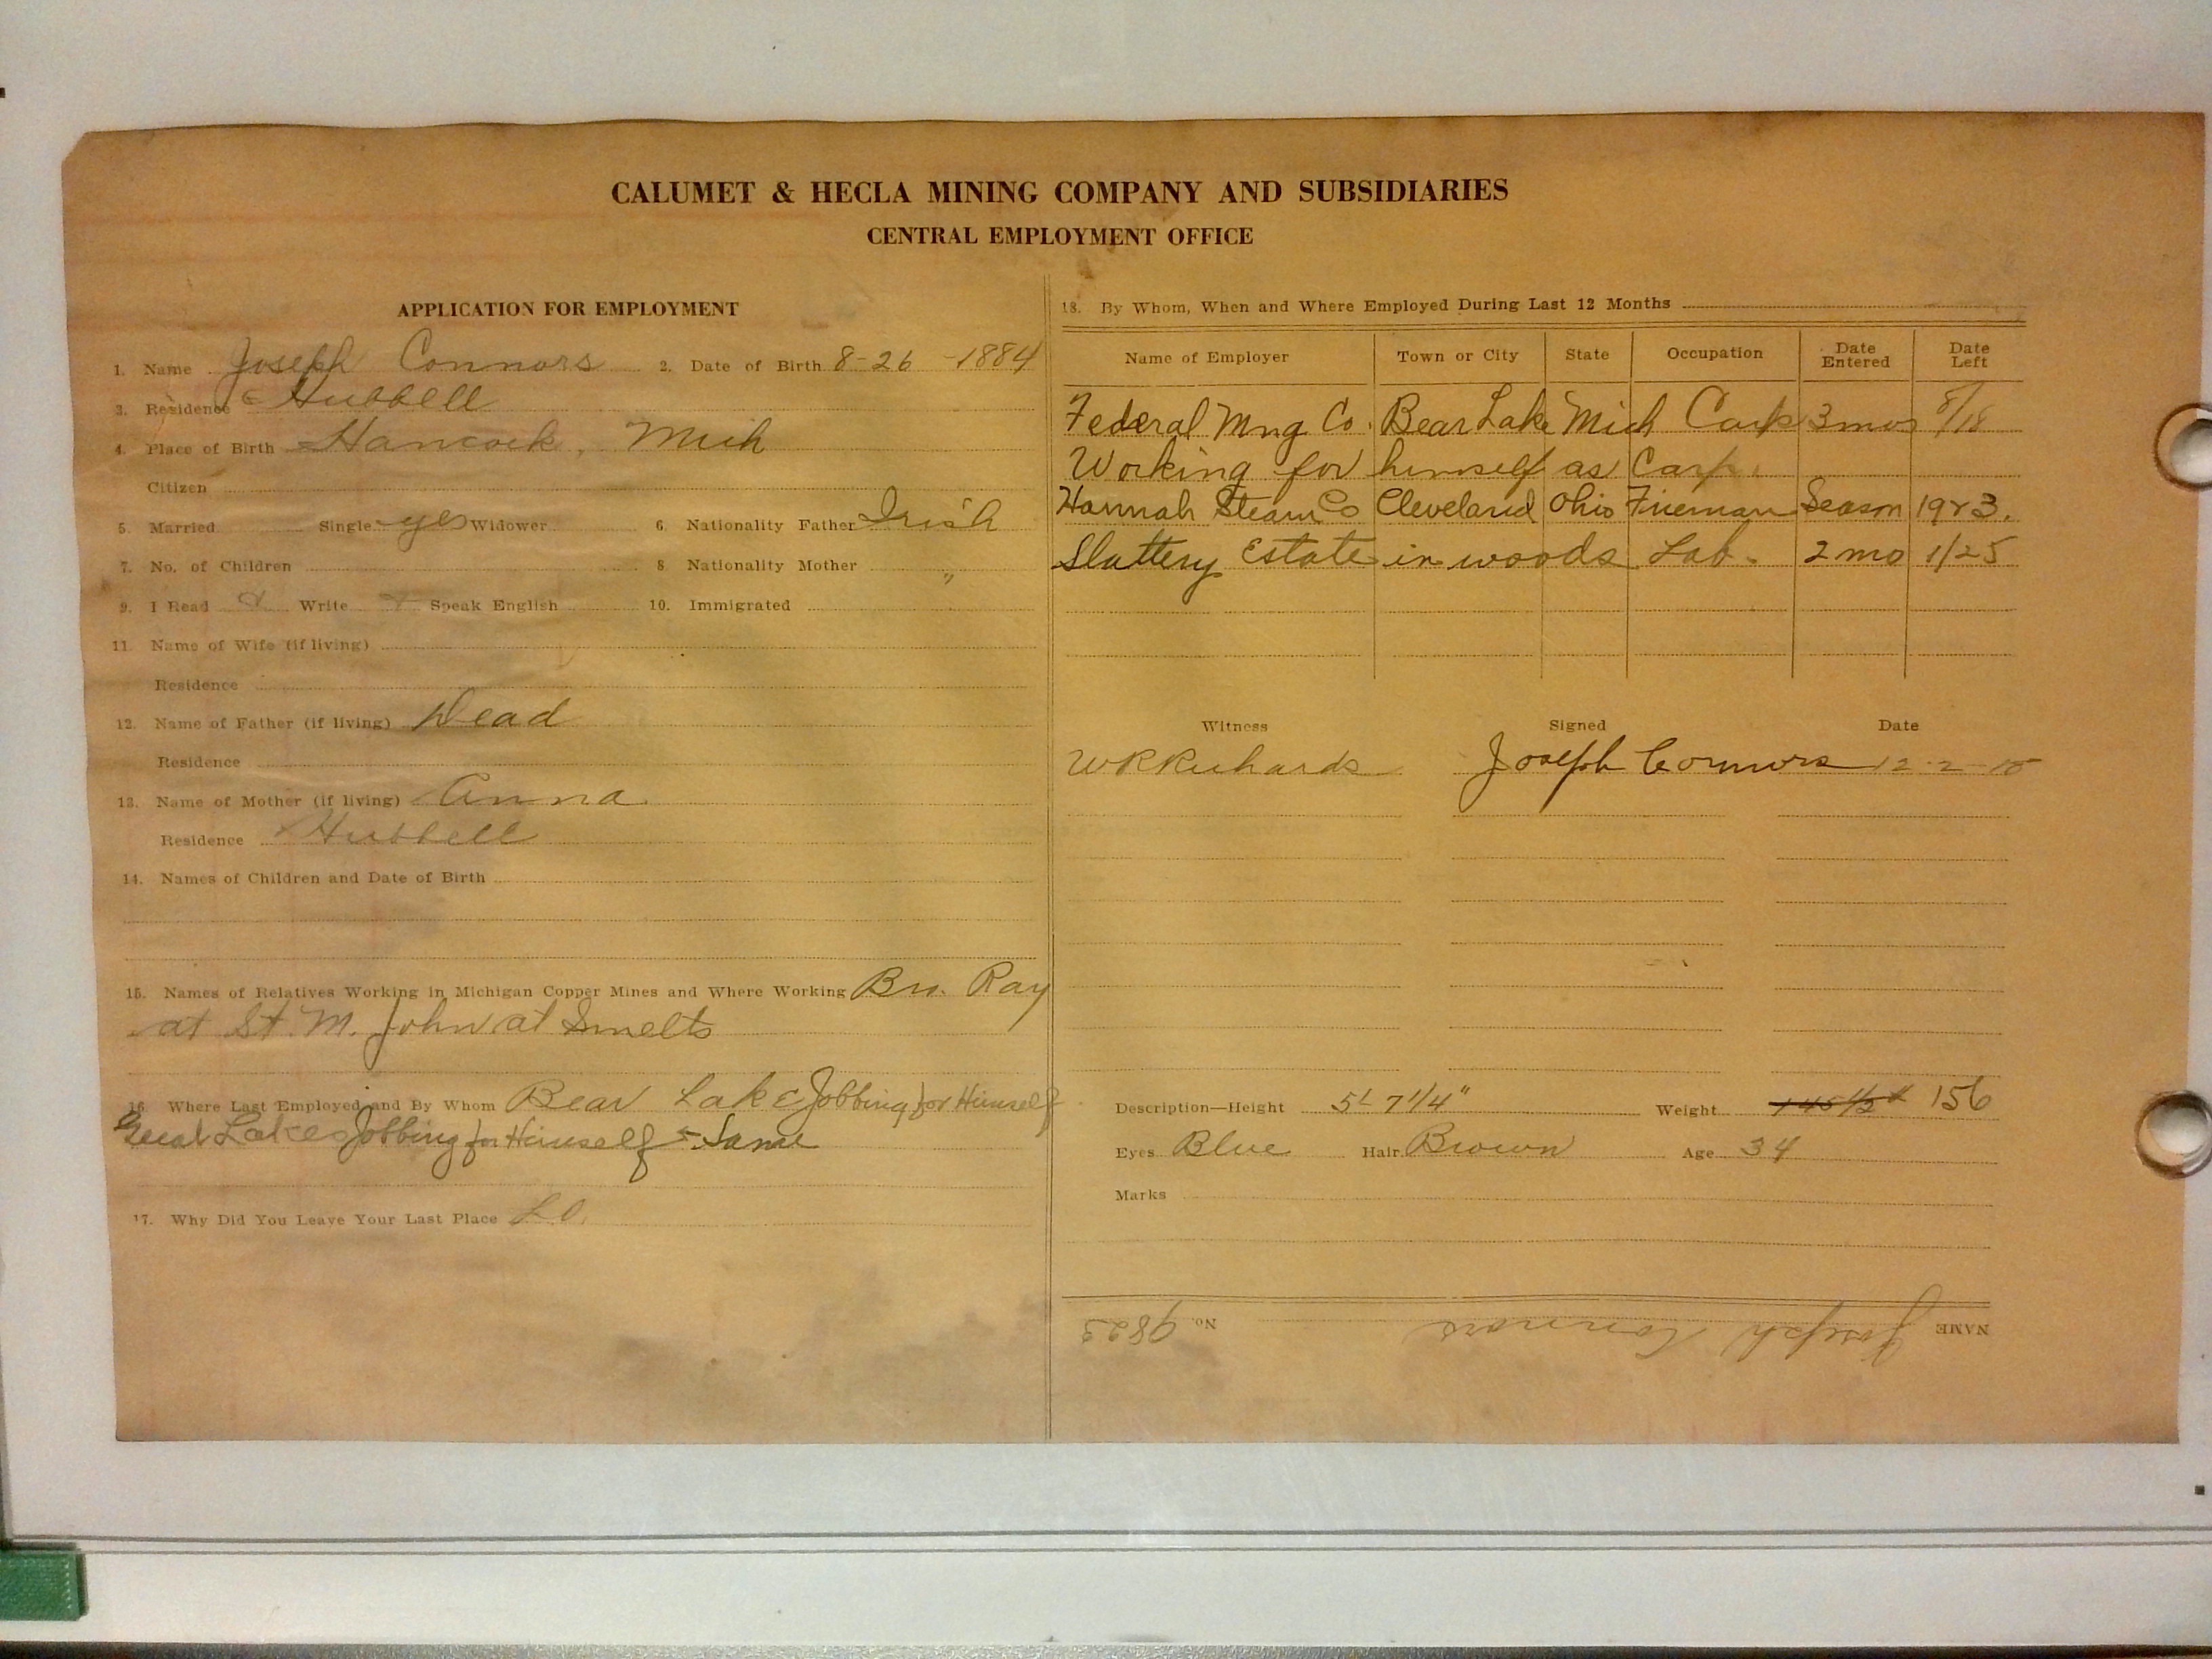 CALUMET & HECLA MINING COMPANY AND SUBSIDIARIES
CENTRAL EMPLOYMENT OFFICE
APPLICATION FOR EMPLOYMENT
1. Name Joseph Connors 2. Date of Birth 8-26-1884
3. Residence Hubbell
4. Place of Birth Hancock, Mich
Citizen
5. Married Single yes Widower 6. Nationality Father Irish
7. No. of Children 8. Nationality Mother "
9. I Read Write Speak English 10. Immigrated
11. Name of Wife (if living)
Residence
12. Name of Father (if living) Dead
Residence
13. Name of Mother (if living) Anna
Residence Hubbell
14. Names of Children and Date of Birth
15. Names of Relatives Working in Michigan Copper Mines and Where Working Bro. Ray
at St. M. John at Smelts
16. Where Last Employed and By Whom Bear Lake Jobbing for Himself
Lakes Jobbing for Himself - Same
17. Why Did You Leave Your Last Place L O.
18. By Whom, When and Where Employed During Last 12 Months
Name of Employer Town or City State Occupation Date Entered Date Left
Federal Mng Co. Bear Lake Mich Carp 3 mos 8/18
Working for himself as Carp.
Hannah Steam Co Cleveland Ohio Fireman Season 1923.
Slattery Estate in woods Lab. 2 mo 1/25
Witness Signed Date
W R Richards Joseph Connors 12-2-
Description—Height 5' 7 1/4" Weight 145 1/2# 156
Eyes Blue Hair Brown Age 34
Marks
NAME Joseph Connors No. 9823